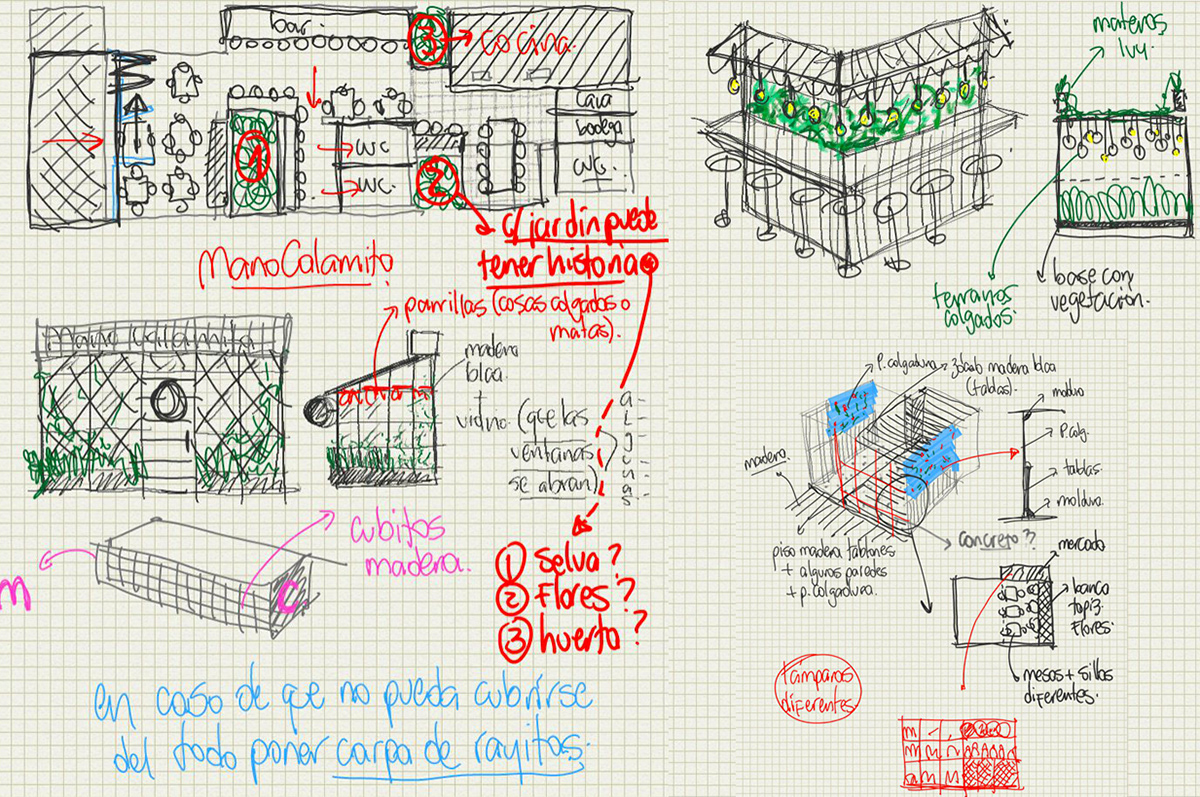 bar
3
cocina
cava
bodega
WC.
1
WC
WC.
2
c/ jardin puede
tener historia
ManoCalamito
parrillas (cosas colgados o
matas).
madera
blca.
+
vidrio. (que las
ventanas
se abran)
algunas
cubitos
madera.
m
C
1 selva?
2 flores?
3 huerto?
en caso de que no pueda cubrirse
del todo poner carpa de rayitas.
materos
Ivy.
terrarios
colgados.
base con
vegetación.
P. colgadura.
zócalo madera blca
(tablas).
moldura
P. Colg.
tablas.
moldura.
madera.
piso madera tablones
+ algunas paredes
+ p. colgadura.
concreto?
mercado
banca
tapiz
flores.
mesas + sillas
diferentes.
lámparas
diferentes.